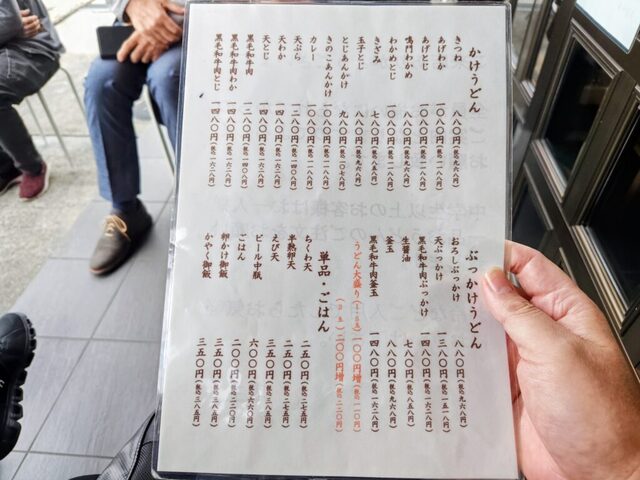 かけうどん
きつね 八八〇円(税込九六八円)
あげわか 一〇八〇円(税込一一八八円)
あげとじ 一〇八〇円(税込一一八八円)
鳴門わかめ 八八〇円(税込九六八円)
わかめとじ 一〇八〇円(税込一一八八円)
きざみ 七八〇円(税込八五八円)
玉子とじ 八八〇円(税込九六八円)
とじあんかけ 九八〇円(税込一〇七八円)
きのこあんかけ 一〇八〇円(税込一一八八円)
カレー 一〇八〇円(税込一一八八円)
天ぷら 一二八〇円(税込一四〇八円)
天わか 一四八〇円(税込一六二八円)
天とじ 一四八〇円(税込一六二八円)
黒毛和牛肉 一二八〇円(税込一四〇八円)
黒毛和牛肉わか 一四八〇円(税込一六二八円)
黒毛和牛肉とじ 一四八〇円(税込一六二八円)
ぶっかけうどん
おろしぶっかけ 八八〇円(税込九六八円)
天ぶっかけ 一三八〇円(税込一五一八円)
黒毛和牛肉ぶっかけ 一四八〇円(税込一六二八円)
生醤油 七八〇円(税込八五八円)
釜玉 八八〇円(税込九六八円)
黒毛和牛肉釜玉 一四八〇円(税込一六二八円)
うどん大盛り 一〇〇円増(税込一一〇円)
(二玉) 二〇〇円増(税込二二〇円)
単品・ごはん
ちくわ天 二五〇円(税込二七五円)
半熟卵天 二五〇円(税込二七五円)
えび天 三五〇円(税込三八五円)
ビール中瓶 六〇〇円(税込六六〇円)
ごはん 二〇〇円(税込二二〇円)
卵かけ御飯 三五〇円(税込三八五円)
かやく御飯 三五〇円(税込三八五円)